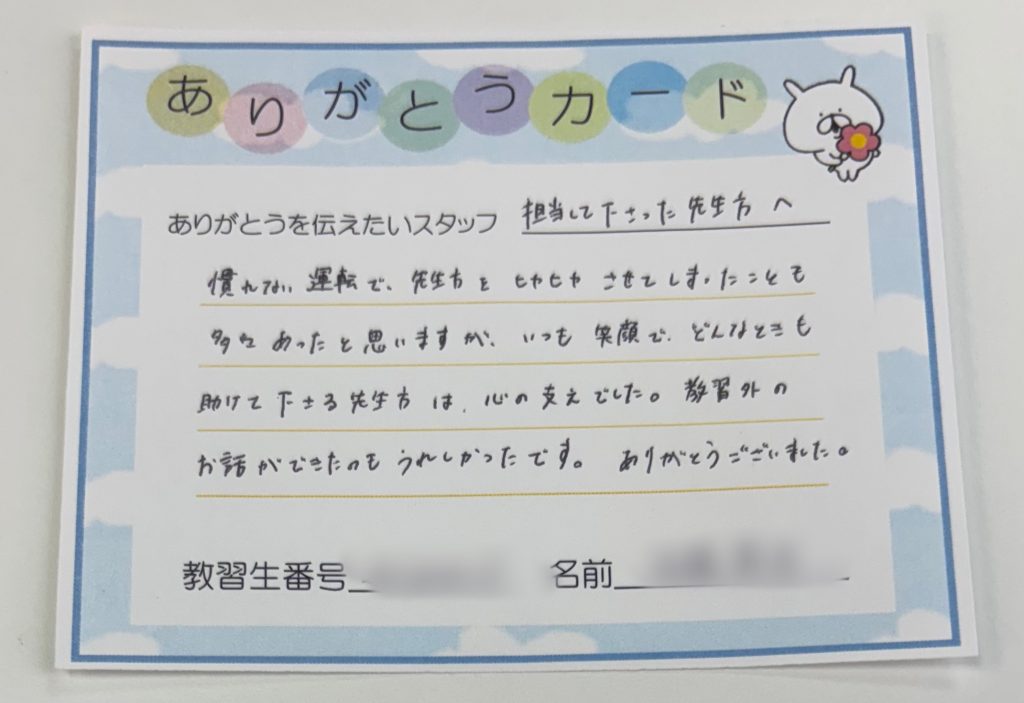 ありがとうカード
ありがとうを伝えたいスタッフ 担当して下さった先生方へ
慣れない運転で、先生方をヒヤヒヤさせてしまったことも
多々あったと思いますが、いつも笑顔で、どんなときも
助けて下さる先生方は、心の支えでした。教習外の
お話ができたのもうれしかったです。 ありがとうございました。
教習生番号 名前